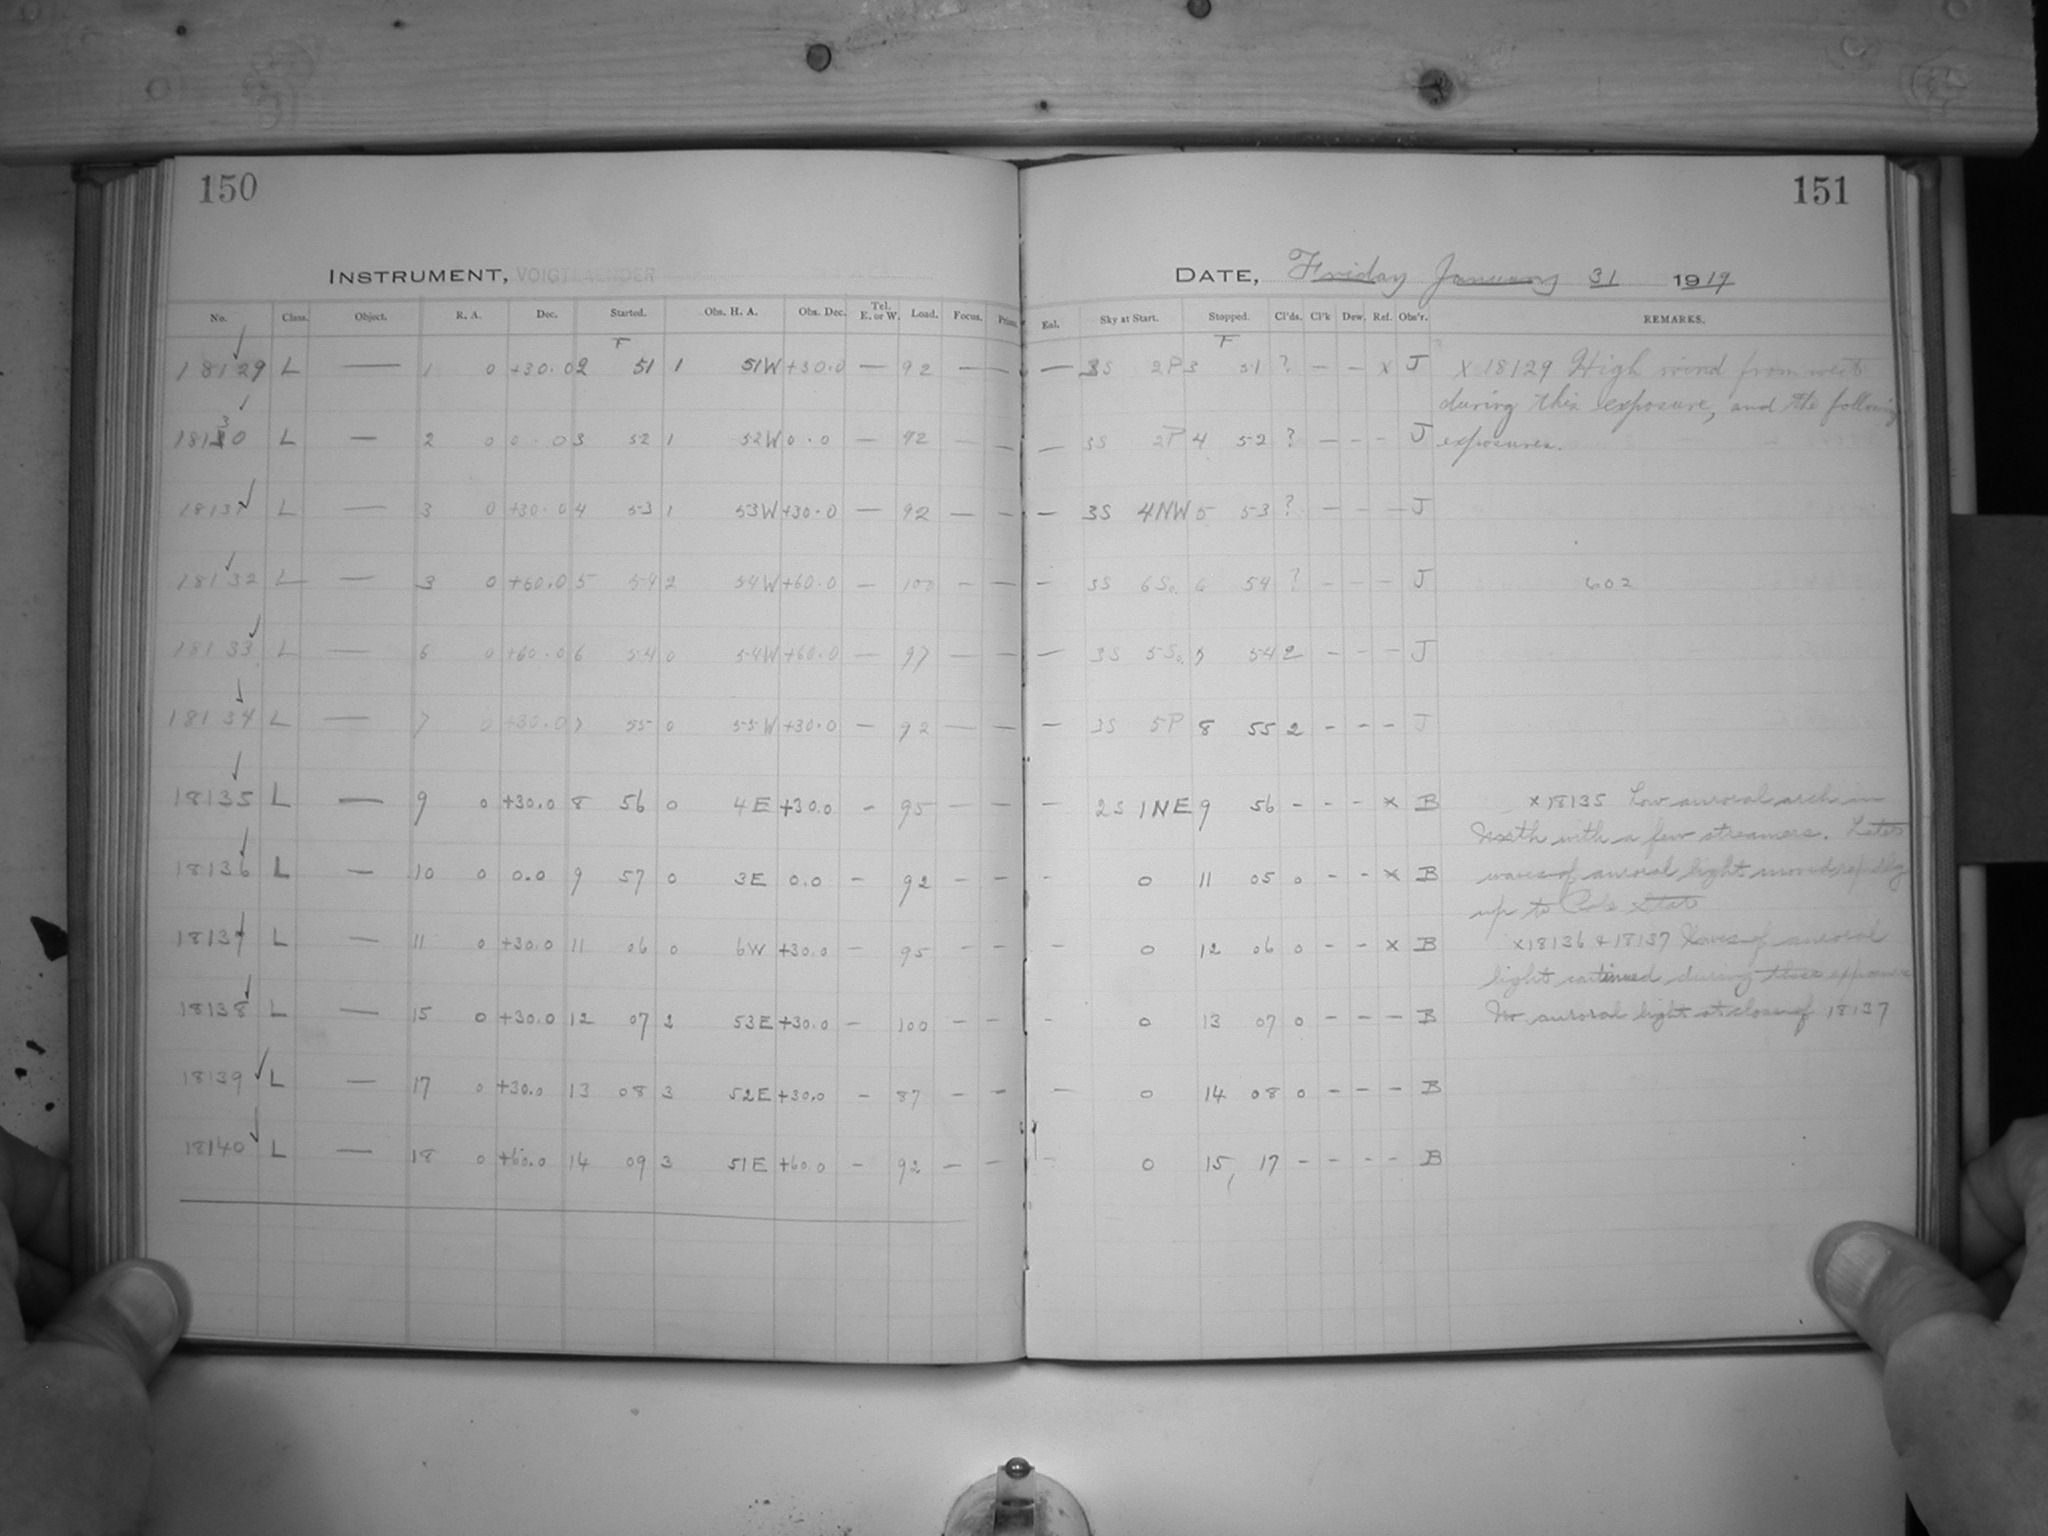 150
151
INSTRUMENT, VOIGTLAENDER
DATE, Friday January 31 1919
No. Class. Object. R. A. Dec. Started. Obs. H. A. Obs. Dec. Tel. E. or W. Load. Focus. Prism. Eal. Sky at Start. Stopped. Cl'ds. Cl'k Dew. Ref. Obs'r. REMARKS.
F F
18129 L — 1 0 +30.0 2 51 1 51W +30.0 — 92 — — — 3S 2P 3 51 ? — — x J x 18129 High wind from west
during this exposure, and the following
18130 L — 2 0 0.0 3 52 1 52W 0.0 — 92 — — — 3S 2P 4 52 ? — — — J exposures.
18131 L — 3 0 +30.0 4 53 1 53W +30.0 — 92 — — — 3S 4NW 5 53 ? — — — J
18132 L — 3 0 +60.0 5 54 2 54W +60.0 — 100 — — — 3S 6So. 6 54 ? — — — J 602
18133 L — 6 0 +60.0 6 54 0 54W +60.0 — 97 — — — 3S 5So. 7 54 2 — — — J
18134 L — 7 0 +30.0 7 55 0 55W +30.0 — 92 — — — 3S 5P 8 55 2 — — — J
18135 L — 9 0 +30.0 8 56 0 4E +30.0 — 95 — — — 2S 1NE 9 56 — — — x B x 18135 Low auroral arch in
North with a few streamers. Later
18136 L — 10 0 0.0 9 57 0 3E 0.0 — 92 — — — 0 11 05 0 — — x B waves of auroral light moved rapidly
up to Pole Star
18137 L — 11 0 +30.0 11 06 0 6W +30.0 — 95 — — — 0 12 06 0 — — x B x 18136 & 18137 Waves of auroral
light continued during these exposures
18138 L — 15 0 +30.0 12 07 2 53E +30.0 — 100 — — — 0 13 07 0 — — — B No auroral light at close of 18137
18139 L — 17 0 +30.0 13 08 3 52E +30.0 — 87 — — — 0 14 08 0 — — — B
18140 L — 18 0 +60.0 14 09 3 51E +60.0 — 92 — — — 0 15 17 — — — — B